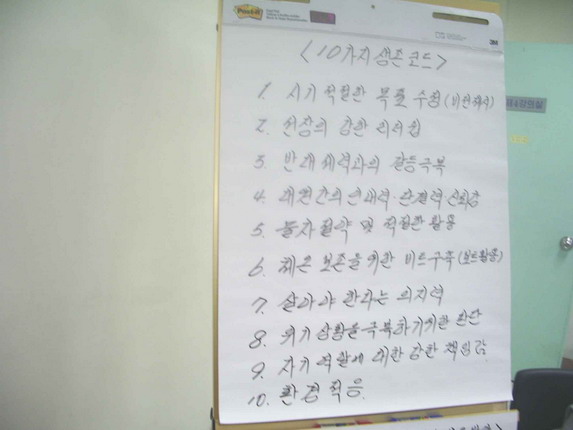 Post-it
3M
<10가지 생존 코드>
1. 시기 적절한 목표 수정 (비전제시)
2. 선장의 강한 리더쉽
3. 반대 세력과의 갈등극복
4. 대원간의 인내력·단결력·신뢰감
5. 물자절약 및 적절한 활용
6. 체온 보존을 위한 비트구축 (보트활용)
7. 살아야 한다는 의지력
8. 위기 상황을 극복하기위한 판단
9. 자기 역할에 대한 강한 책임감
10. 환경 적응.
강의실